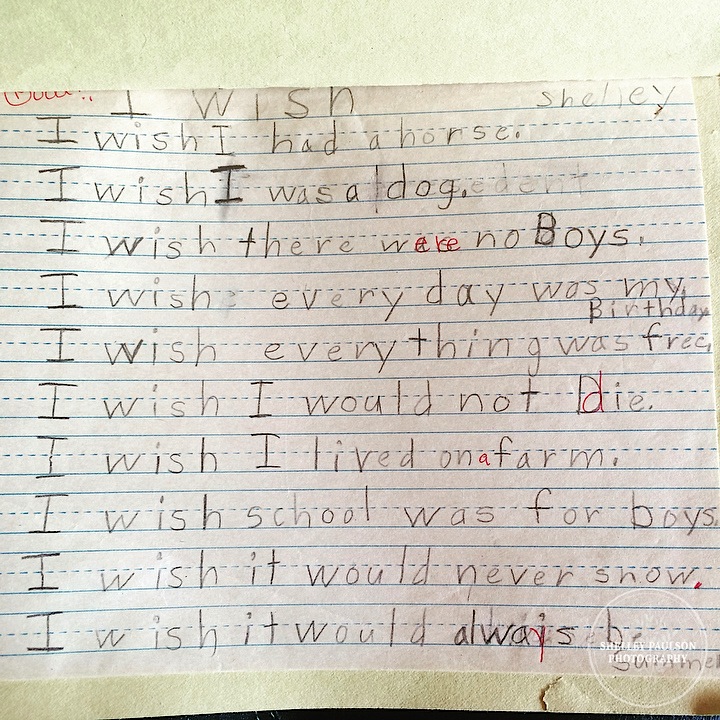 I wish shelley
I wish I had a horse.
I wish I was a dog.
I wish there were no Boys.
I wish every day was my
Birthday
I wish everything was free.
I wish I would not die.
I wish I lived on a farm.
I wish school was for boys
I wish it would never snow.
I wish it would always be
summer
SHELLEY PAULSON
PHOTOGRAPHY